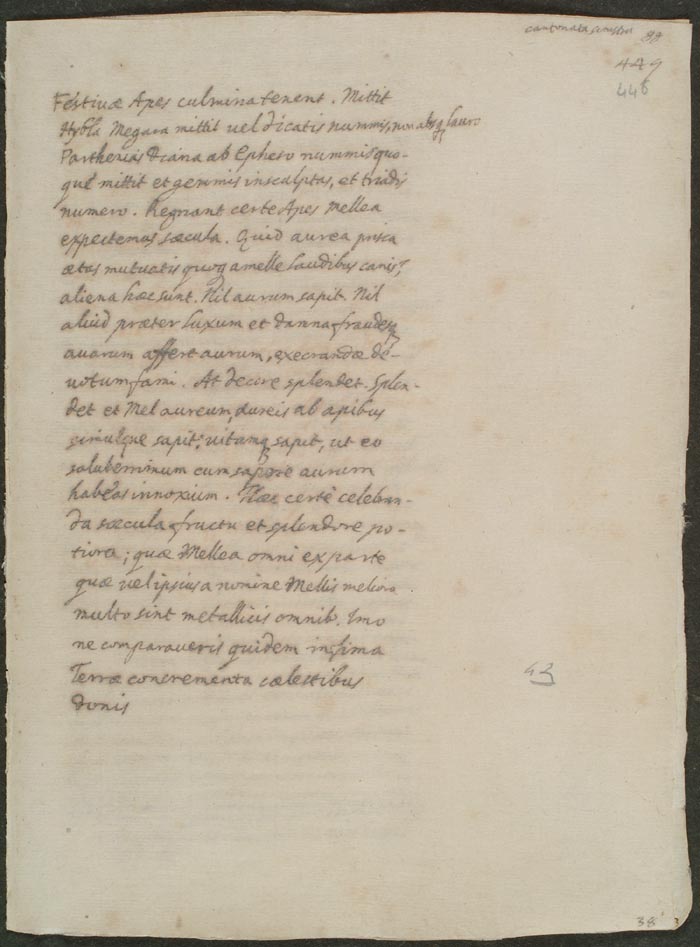 cantonata sinistra 88
449
448
Festiuæ Apes culmina tenent. Mittit
Hybla Megara mittit uel dicatis nummis, non absq lauro
Parthenias Diana ab Epheso nummis quo-
que mittit et gemmis insculptas, et triadis
numero. Regnant certe Apes Mellea
expectemus sæcula. Quid aurea prisca
ætas mutuatis quoq a melle laudibus canis?
aliena hæc sunt. Nil aurum sapit. Nil
aliud præter luxum et damna fraudesq
auarum affert aurum, execrandæ de-
uotum fami. At decore splendet. Splen-
det et Mel aureum, aureis ab apibus
simulque sapit; uitamq sapit, ut eo
saluberrimum cum sapore aurum
habeas innoxium. Hæc certè celebran-
da sæcula fructu et splendore po-
tiora; quæ Mellea omni ex parte
quæ uel ipsius a nomine Mellis meliora
multo sint metallicis omnib. Imo
ne comparaueris quidem infima
Terræ concrementa cælestibus
donis
43
38